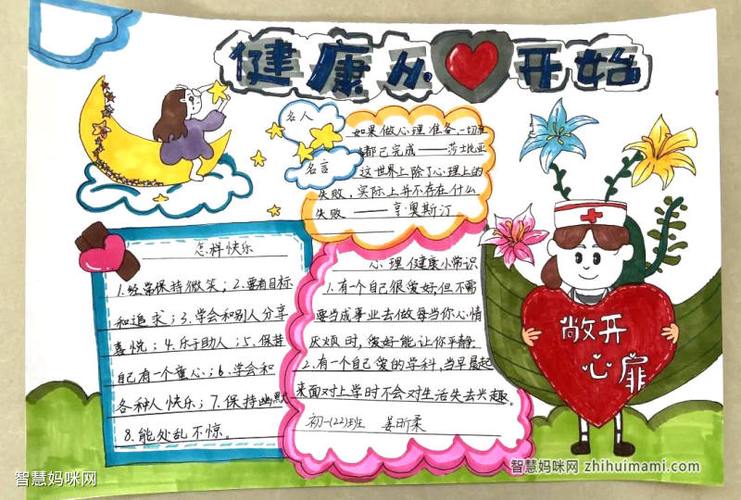 健康从❤开始
名人
名言
如果做心理准备,一切准
都已完成——莎士比亚
这世界上除了心理上的
失败,实际上并不存在什么
失败 ——亨·奥斯汀
怎样快乐
1.经常保持微笑;2.要有目标
和追求;3.学会和别人分享
喜悦;4.乐于助人;5.保持
自己有一个童心;6.学会和
各种人快乐;7.保持幽默
8.能处乱不惊。
心理健康小常识
1.有一个自己很爱好但不需
要当成事业去做每当你心情
厌烦时,爱好能让你平静
2.有一个自己爱的学科,当早晨起
来面对上学时不会对生活失去兴趣。
初一(22)班 姜昕柔
敞开
心扉
智慧妈咪网
智慧妈咪网 zhihuimami.com